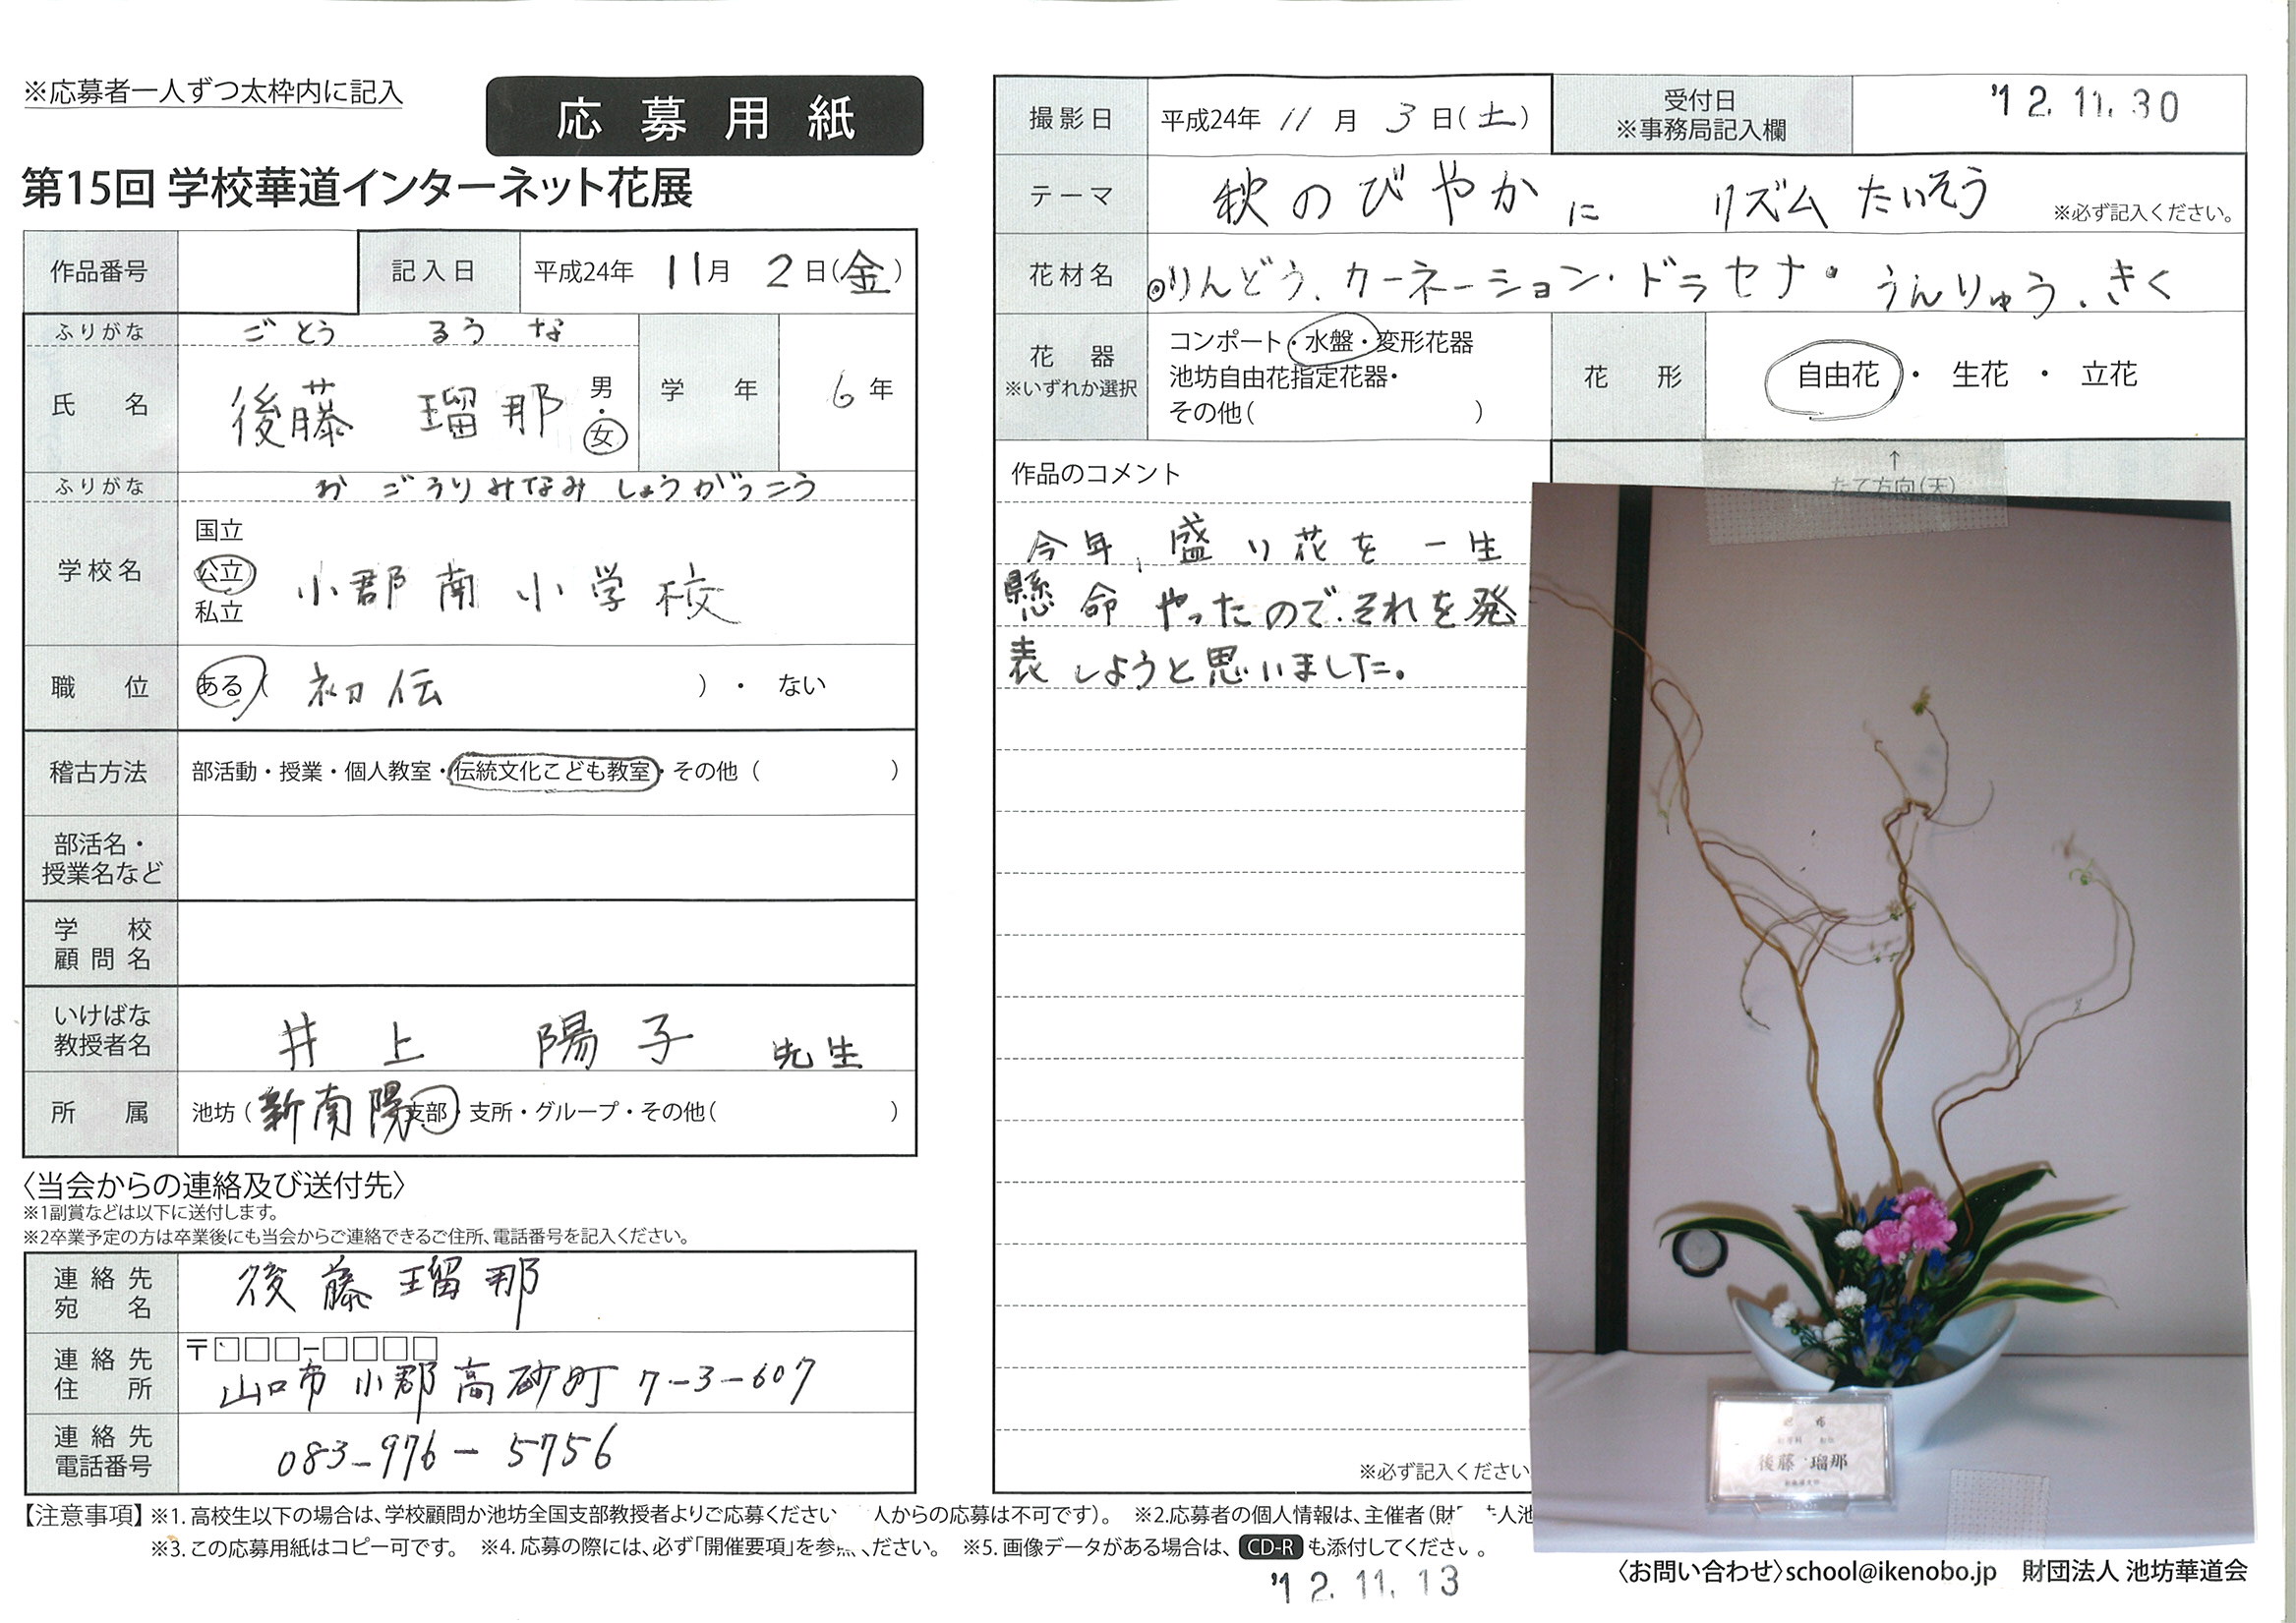 ※応募者一人ずつ太枠内に記入
応募用紙
第15回 学校華道インターネット花展
作品番号
記入日 平成24年 11月 2日(金)
ふりがな ごとう るうな
氏名 後藤 瑠那 男・女
学年 6年
ふりがな おごおりみなみしょうがっこう
学校名 国立 公立 私立 小郡南小学校
職位 ある( 初伝 )・ ない
稽古方法 部活動・授業・個人教室・伝統文化こども教室・その他( )
部活名・
授業名など
学校
顧問名
いけばな
教授者名 井上 陽子 先生
所属 池坊(新南陽 支部・支所・グループ・その他( )
〈当会からの連絡及び送付先〉
※1副賞などは以下に送付します。
※2卒業予定の方は卒業後にも当会からご連絡できるご住所、電話番号を記入ください。
連絡先
宛名 後藤瑠那
連絡先
住所 〒□□□-□□□□
山口市小郡高砂町7-3-607
連絡先
電話番号 083-976-5756
撮影日 平成24年 11月 3日(土)
受付日
※事務局記入欄 '12.11.30
テーマ 秋のびやかに リズムたいそう ※必ず記入ください。
花材名 ◎りんどう、カーネーション・ドラセナ・うんりゅう、きく
花器
※いずれか選択
コンポート・水盤・変形花器
池坊自由花指定花器・
その他( )
花形 自由花 ・ 生花 ・ 立花
作品のコメント
今年、盛り花を一生
懸命やったので、それを発
表しようと思いました。
※必ず記入ください
↑
たて方向(天)
後藤 瑠那
【注意事項】※1.高校生以下の場合は、学校顧問か池坊全国支部教授者よりご応募ください 人からの応募は不可です)。 ※2.応募者の個人情報は、主催者(財 人池
※3.この応募用紙はコピー可です。 ※4.応募の際には、必ず「開催要項」を参 ください。 ※5.画像データがある場合は、CD-Rも添付してください。
'12.11.13
〈お問い合わせ〉school@ikenobo.jp 財団法人 池坊華道会